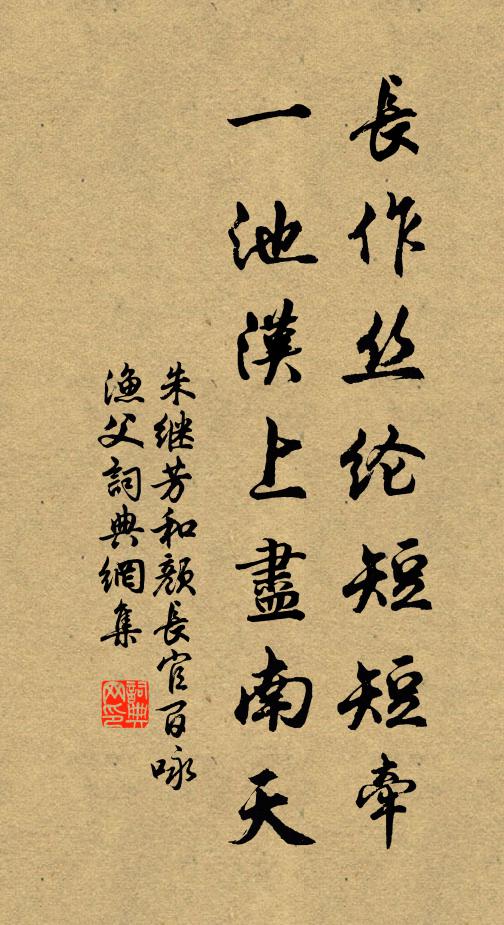 長作丝纶短短牵
一池漠上盡南天
朱继芳和顏長官百咏
漁父詞典網集
詞典网印